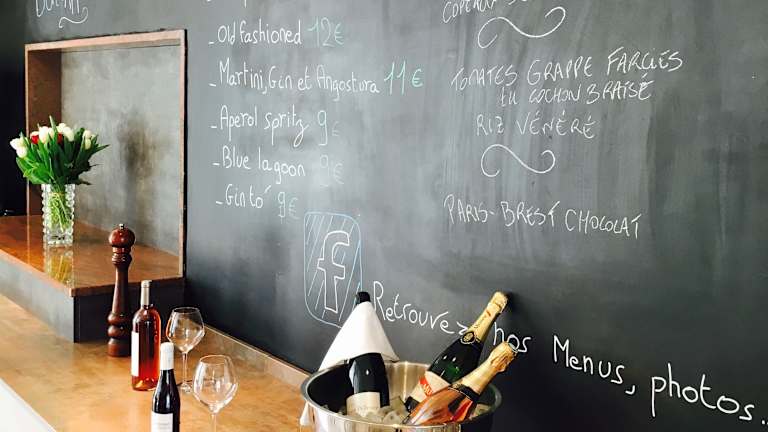 _Old fashioned 12€
_Martini, Gin et Angostura 11€
_Aperol spritz 9€
_Blue lagoon 9€
_Ginto' 9€
TOMATES GRAPPE FARCIES
COCHON BRAISÉ
RIZ VÉNÉRÉ
PARIS-BREST CHOCOLAT
f
Retrouvez nos Menus, photos...